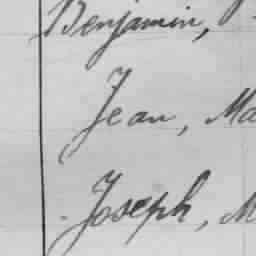 Benjamin,
Jean, Ma
Joseph, M